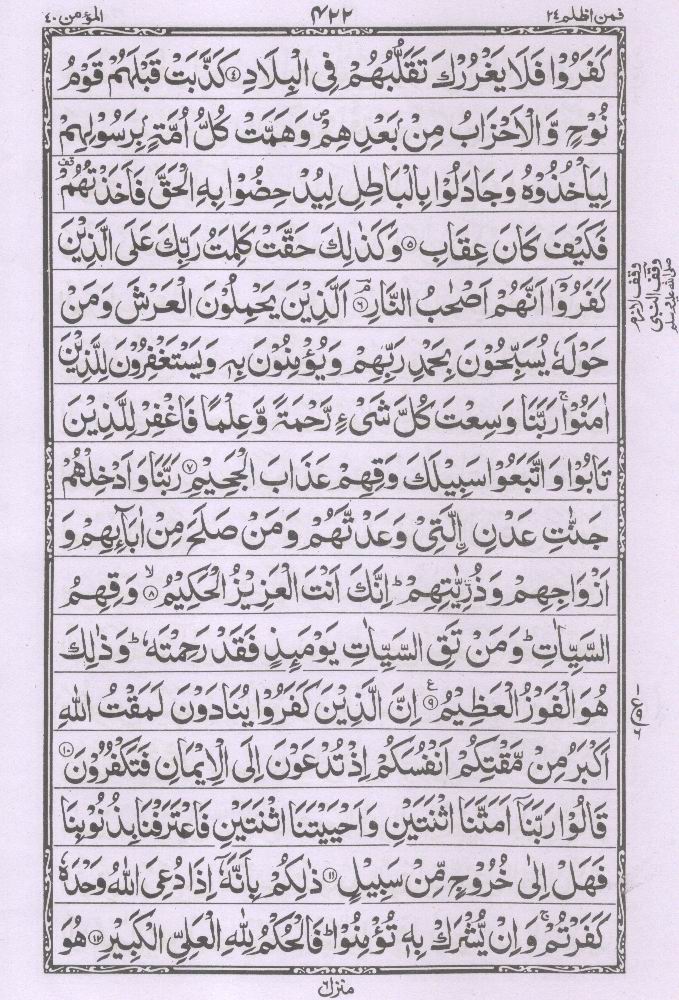 فمن اظلم ٢٤
٤٢٢
المؤمن ٤٠
كَفَرُوْا فَلَا يَغْرُرْكَ تَقَلُّبُهُمْ فِى الْبِلَادِ ۝٤ كَذَّبَتْ قَبْلَهُمْ قَوْمُ
نُوْحٍ وَّالْاَحْزَابُ مِنْۢ بَعْدِهِمْ ۪ وَهَمَّتْ كُلُّ اُمَّةٍۭ بِرَسُوْلِهِمْ
لِيَاْخُذُوْهُ وَجَادَلُوْا بِالْبَاطِلِ لِيُدْحِضُوْا بِهِ الْحَقَّ فَاَخَذْتُهُمْ قف
فَكَيْفَ كَانَ عِقَابِ ۝٥ وَكَذٰلِكَ حَقَّتْ كَلِمَتُ رَبِّكَ عَلَى الَّذِيْنَ
كَفَرُوْٓا اَنَّهُمْ اَصْحٰبُ النَّارِ ۘ ۝٦ اَلَّذِيْنَ يَحْمِلُوْنَ الْعَرْشَ وَمَنْ
حَوْلَهٗ يُسَبِّحُوْنَ بِحَمْدِ رَبِّهِمْ وَيُؤْمِنُوْنَ بِهٖ وَيَسْتَغْفِرُوْنَ لِلَّذِيْنَ
اٰمَنُوْا ۚ رَبَّنَا وَسِعْتَ كُلَّ شَىْءٍ رَّحْمَةً وَّعِلْمًا فَاغْفِرْ لِلَّذِيْنَ
تَابُوْا وَاتَّبَعُوْا سَبِيْلَكَ وَقِهِمْ عَذَابَ الْجَحِيْمِ ۝٧ رَبَّنَا وَاَدْخِلْهُمْ
جَنّٰتِ عَدْنِ ࣙالَّتِىْ وَعَدْتَّهُمْ وَمَنْ صَلَحَ مِنْ اٰبَآئِهِمْ وَ
اَزْوَاجِهِمْ وَذُرِّيّٰتِهِمْ ؕ اِنَّكَ اَنْتَ الْعَزِيْزُ الْحَكِيْمُ ۙ ۝٨ وَقِهِمُ
السَّيِّاٰتِ ؕ وَمَنْ تَقِ السَّيِّاٰتِ يَوْمَئِذٍ فَقَدْ رَحِمْتَهٗ ؕ وَذٰلِكَ
هُوَ الْفَوْزُ الْعَظِيْمُ ۝٩ ع اِنَّ الَّذِيْنَ كَفَرُوْا يُنَادَوْنَ لَمَقْتُ اللّٰهِ
اَكْبَرُ مِنْ مَّقْتِكُمْ اَنْفُسَكُمْ اِذْ تُدْعَوْنَ اِلَى الْاِيْمَانِ فَتَكْفُرُوْنَ ۝١٠
قَالُوْا رَبَّنَآ اَمَتَّنَا اثْنَتَيْنِ وَاَحْيَيْتَنَا اثْنَتَيْنِ فَاعْتَرَفْنَا بِذُنُوْبِنَا
فَهَلْ اِلٰى خُرُوْجٍ مِّنْ سَبِيْلٍ ۝١١ ذٰلِكُمْ بِاَنَّهٗٓ اِذَا دُعِىَ اللّٰهُ وَحْدَهٗ
كَفَرْتُمْ ۚ وَاِنْ يُّشْرَكْ بِهٖ تُؤْمِنُوْا ؕ فَالْحُكْمُ لِلّٰهِ الْعَلِىِّ الْكَبِيْرِ ۝١٢ هُوَ
وقف لازم
وقف النبى
صلى الله عليه وسلم
ع
منزل ٦